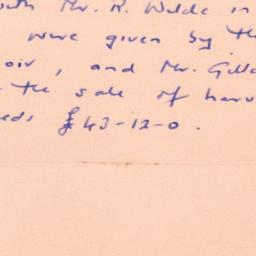 Mr. R. Walde in
were given by the
, and Mr. Gill
the sale of harv
£43-12-0.